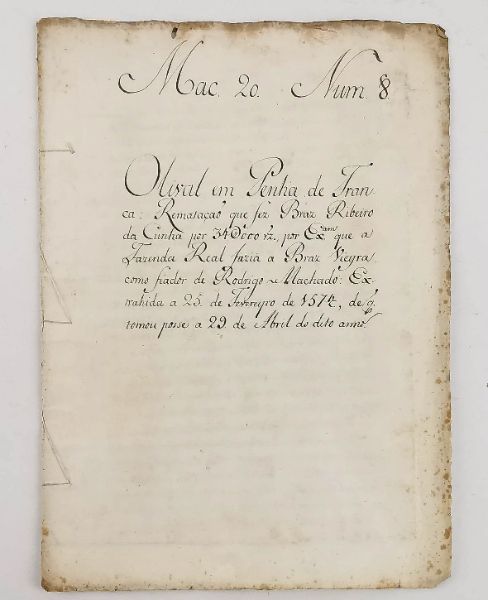 Mac. 20. Num. 8
Olival em Penha de Fran-
ca: Remataçaõ que fez Braz Ribeiro
da Cunha por 345000 rz., por Exam que a
Fazenda Real fazia a Braz Vieyra
como fiador de Rodrigo Machado: Ex-
trahida a 25. de Fevereyro de 1574, de q
tomou posse a 29. de Abril do dito anno